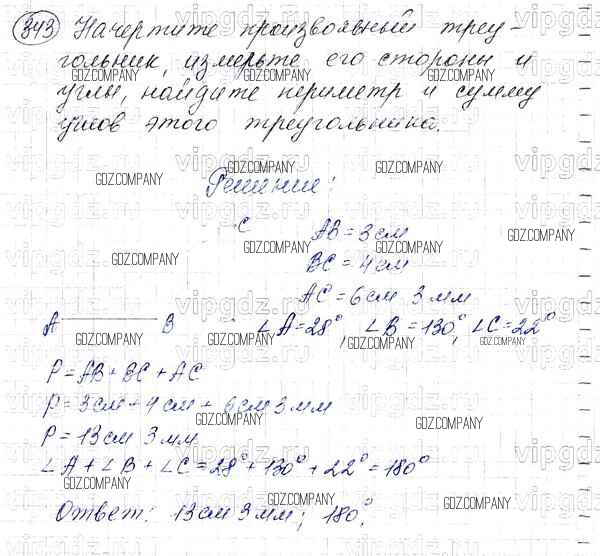 343 Начертите произвольный треу-
гольник, измерьте его стороны и
углы, найдите периметр и сумму
углов этого треугольника.
Решение:
C
AB = 3 см
BC = 4 см
AC = 6 см 3 мм
A B ∠A = 28°, ∠B = 130°, ∠C = 22°
P = AB + BC + AC
P = 3 см + 4 см + 6 см 3 мм
P = 13 см 3 мм
∠A + ∠B + ∠C = 28° + 130° + 22° = 180°
Ответ: 13 см 3 мм; 180°.
GDZ.COMPANY
vipgdz.ru